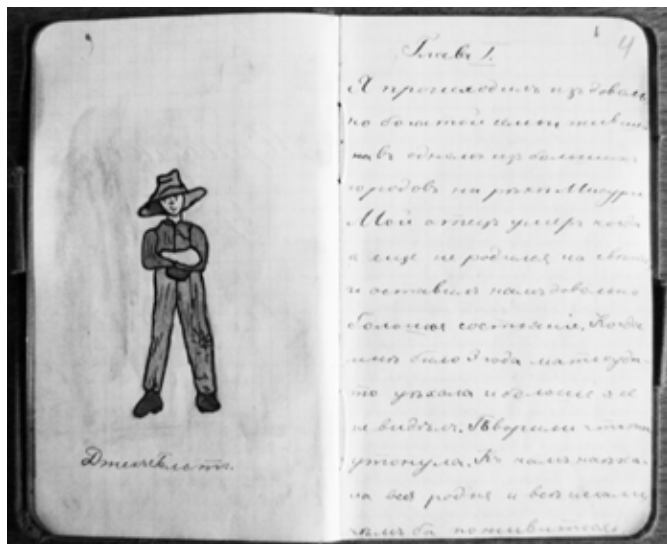 4
Глава I.
Я происходилъ изъ доволь
но богатой семьи жившей
въ одномъ изъ большихъ
городовъ на рѣкѣ Мисури
Мой отецъ умеръ когда
я еще не родился на свѣтъ
и оставилъ намъ довольно
большое состоянiе. Когда
мнѣ было 3 года мать куда
то уѣхала и больше я ее
не видѣлъ. Говорили что она
утонула. Къ намъ
вся родня и всѣ искали
чѣмъ бы поживиться.